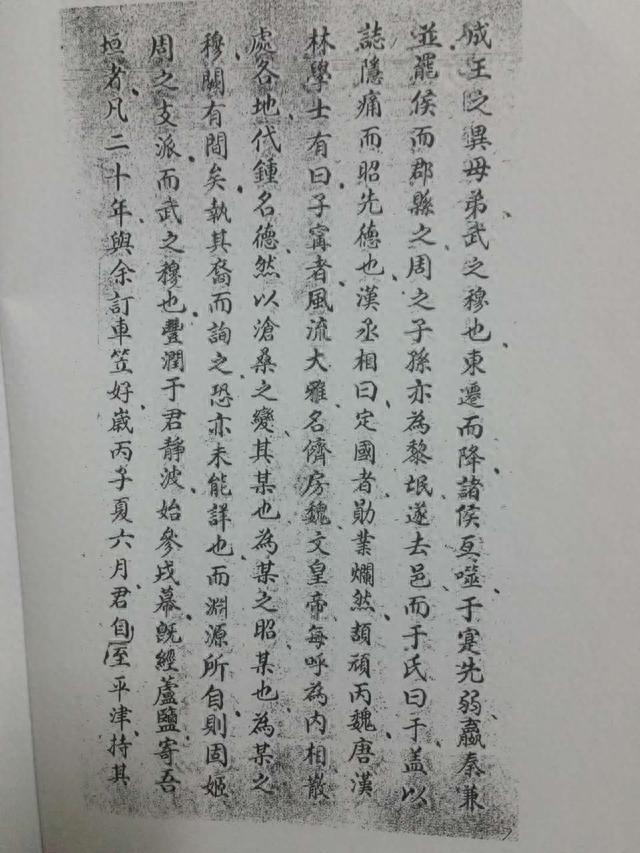 成王之異母弟武之穆也東遷而降諸侯互噬于寔先弱嬴秦兼
並罷侯而郡縣之周之子孫亦為黎氓遂去邑而于氏曰于盖以
誌隱痛而昭先德也漢丞相曰定國者勛業爛然頡頏丙魏唐漢
林學士有曰子甯者風流大雅名儕房魏文皇帝每呼為内相散
處各地代鍾名德然以滄桑之變其某也為某之昭某也為某之
穆闕有間矣執其裔而詢之恐亦未能詳也而淵源所自則固姬
周之支派而武之穆也豐潤于君靜波始參戎幕旣經蘆鹽寄吾
垣者凡二十年與余訂車笠好歲丙子夏六月君自至平津持其